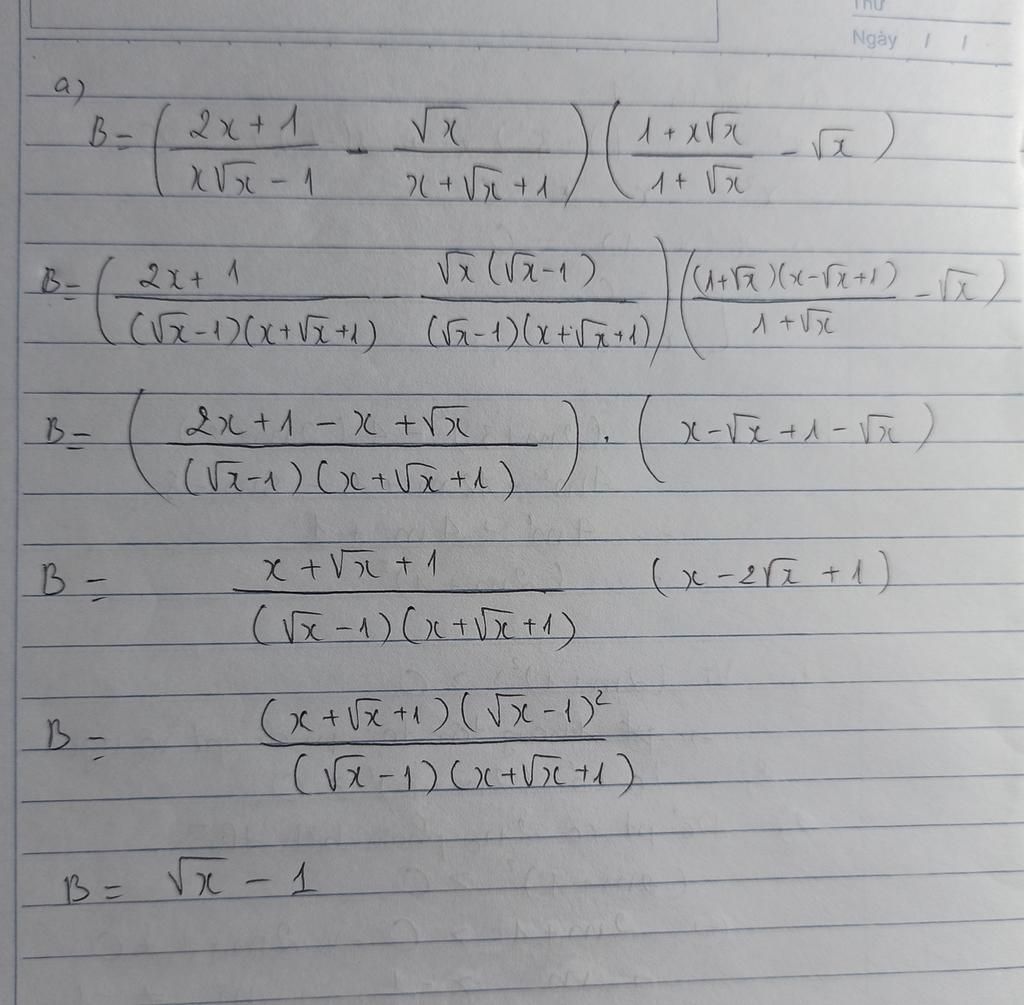 Thứ
Ngày / /
a)
B = ( (2x + 1)/(x√x − 1) − √x/(x + √x + 1) ) ( (1 + x√x)/(1 + √x) − √x )
B = ( (2x + 1)/((√x−1)(x+√x+1)) − √x(√x−1)/((√x−1)(x+√x+1)) ) ( (1+√x)(x−√x+1)/(1+√x) − √x )
B = ( (2x + 1 − x + √x)/((√x−1)(x+√x+1)) ) . ( x−√x + 1 − √x )
B = (x + √x + 1)/((√x − 1)(x+√x+1)) (x − 2√x + 1)
B = (x + √x + 1)(√x − 1)²/((√x − 1)(x+√x+1))
B = √x − 1